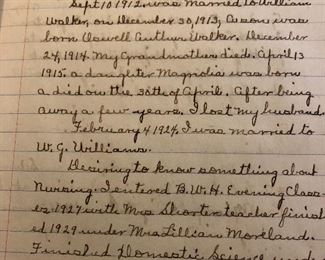 Sept 10 1912, was married to William
Walker, on December 30, 1913, a son was
born Lowell Author Walker. December
24, 1914. My Grandmother died. April 13
1915. a daughter Magnolia was born
a died on the 30th of April. After being
away a few years, I lost my husband.
February 4 1924. I was married to
W. G. Williams.
Desiring to know something about
Nursing. I entered B. W. H. Evening Class-
es 1927 with Mrs Shorter teacher finish
ed 1929 under Mrs Lillian Moreland.
Finished Domestic Science und